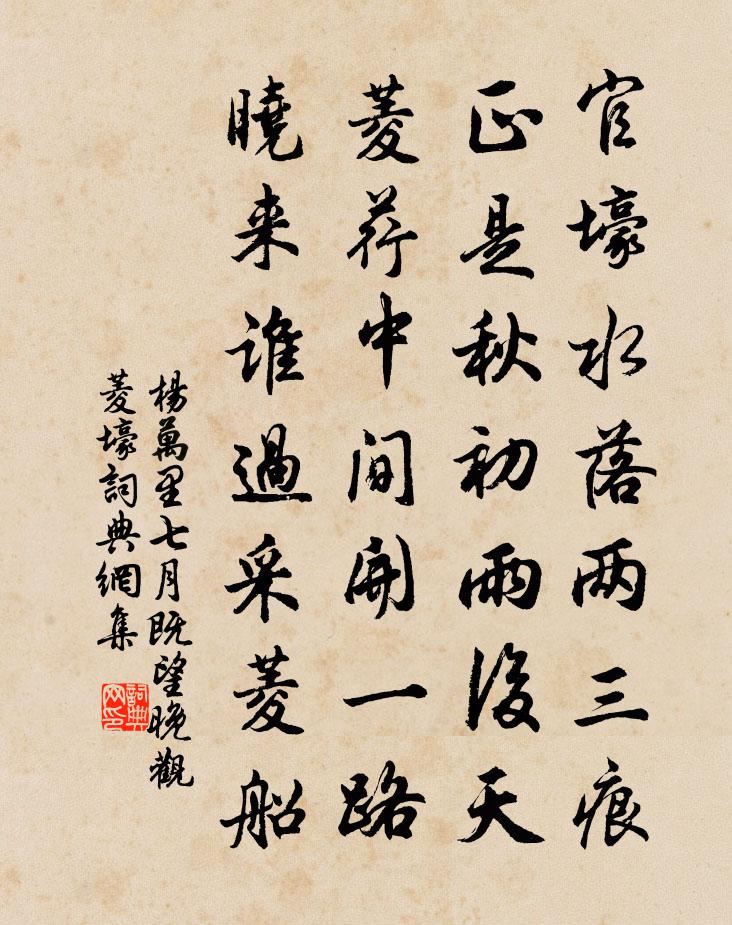 官壕水落两三痕
正是秋初雨後天
菱荇中間開一路
曉来誰過采菱船
楊萬里七月既望晚觀
菱壕詞典網集
詞典
网印